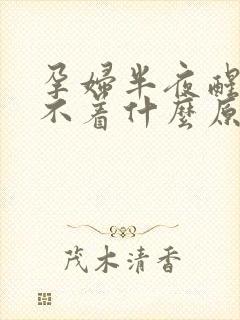 孕婦半夜醒
不着什麼原
茂木清香